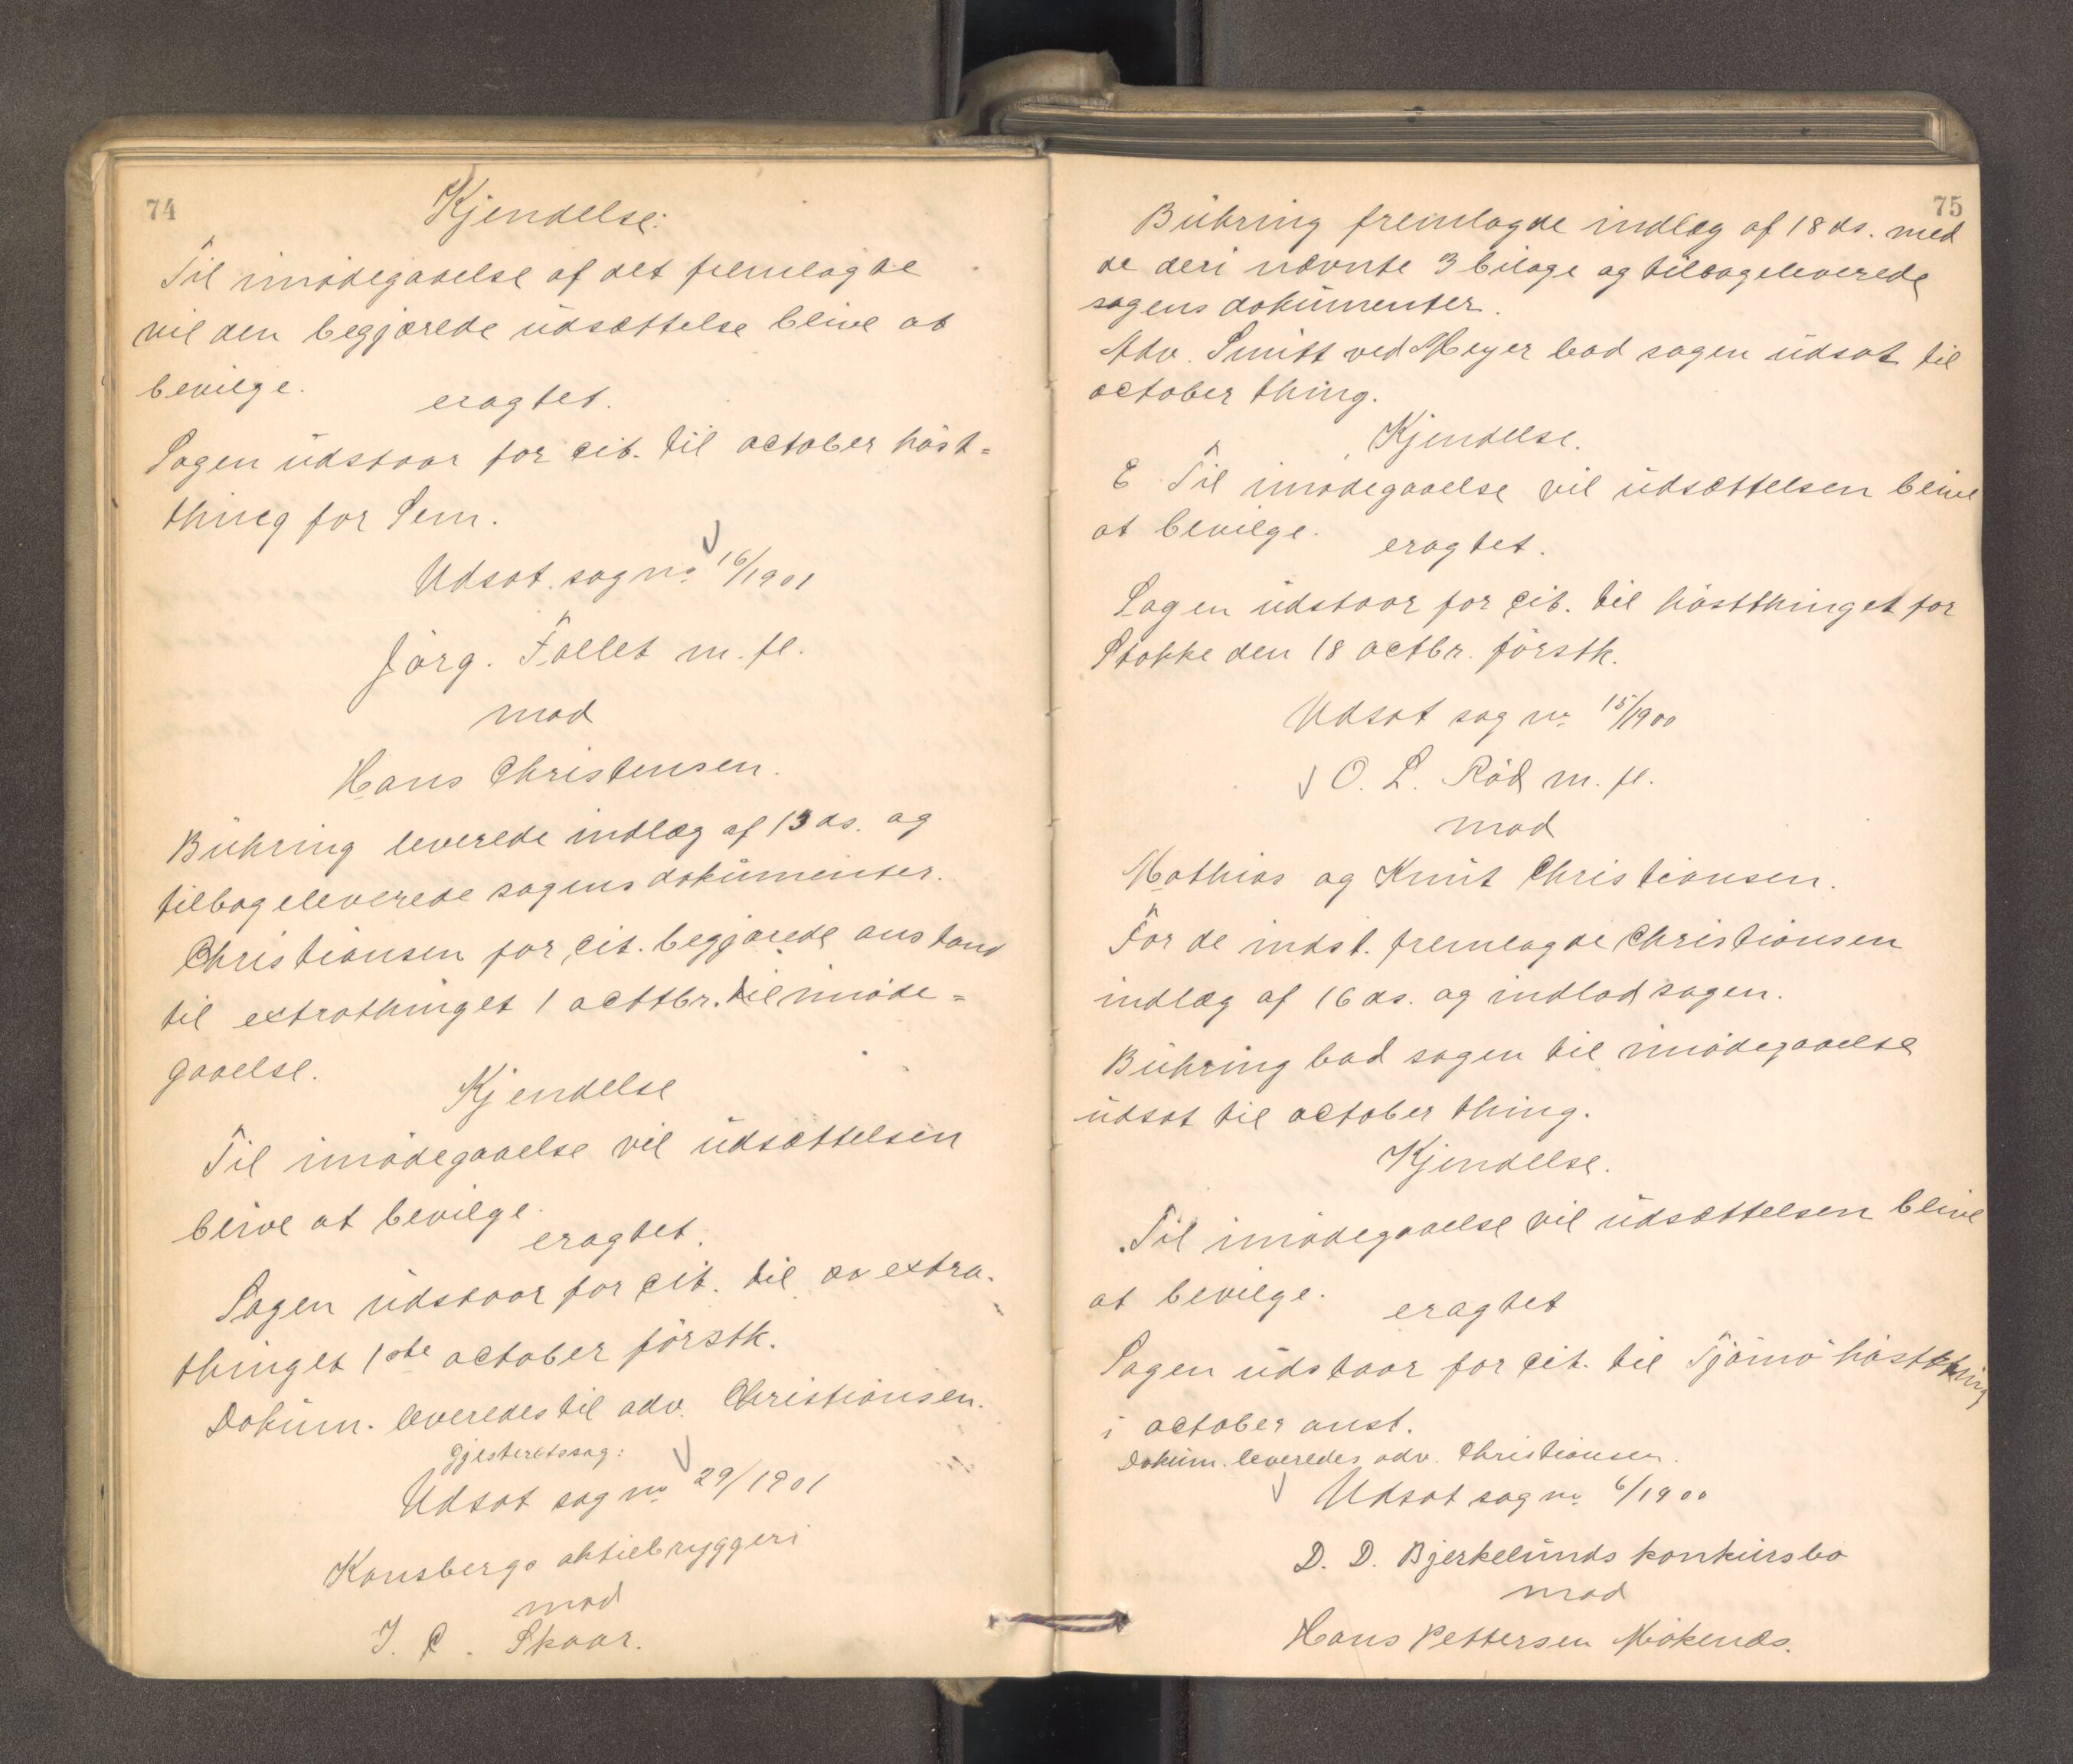 74
Kjendelse:
Til imødegaaelse af det fremlagte
vil den begjærede udsættelse blive at
bevilge.
eragtet.
Sagen udstaar for cit. til october høst=
thing for Sem.
Udsat sag no 16/1901
Jörg. Follet m. fl.
mod
Hans Christensen.
Bühring leverede indlæg af 13 ds. og
tilbageleverede sagens dokumenter.
Christiansen for cit. begjærede anstand
til extrathinget 1 octbr. til imøde=
gaaelse.
Kjendelse
Til imødegaaelse vil udsættelsen
blive at bevilge.
eragtet.
Sagen udstaar for cit. til extra-
thinget 1ste october førstk.
Dokum. leveredes til adv. Christiansen.
Gjesteretssag:
Udsat sag no 29/1901
Konsbergs aktiebryggeri
mod
J. C. Skaar.
75
Bühring fremlagde indlæg af 18 ds. med
de deri nævnte 3 bilage og tilbageleverede
sagens dokumenter.
Adv. Smitt ved Meyer bad sagen udsat til
october thing.
Kjendelse.
E Til imødegaaelse vil udsættelsen blive
at bevilge.
eragtet.
Sagen udstaar for cit. til høstthinget for
Stokke den 18 octbr. førstk.
Udsat sag no 15/1900
O. L. Röd m. fl.
mod
Mathias og Knut Christiansen.
For de indst. fremlagde Christiansen
indlæg af 16 ds. og indlod sagen.
Bühring bad sagen til imødegaaelse
udsat til october thing.
Kjendelse.
Til imødegaaelse vil udsættelsen blive
at bevilge.
eragtet
Sagen udstaar for cit. til Tjømø høstthing
i october anst.
Dokum. leveredes adv. Christiansen.
Udsat sag no 6/1900
D. D. Bjerkelunds konkursbo
mod
Hans Pettersen Mökenæs.